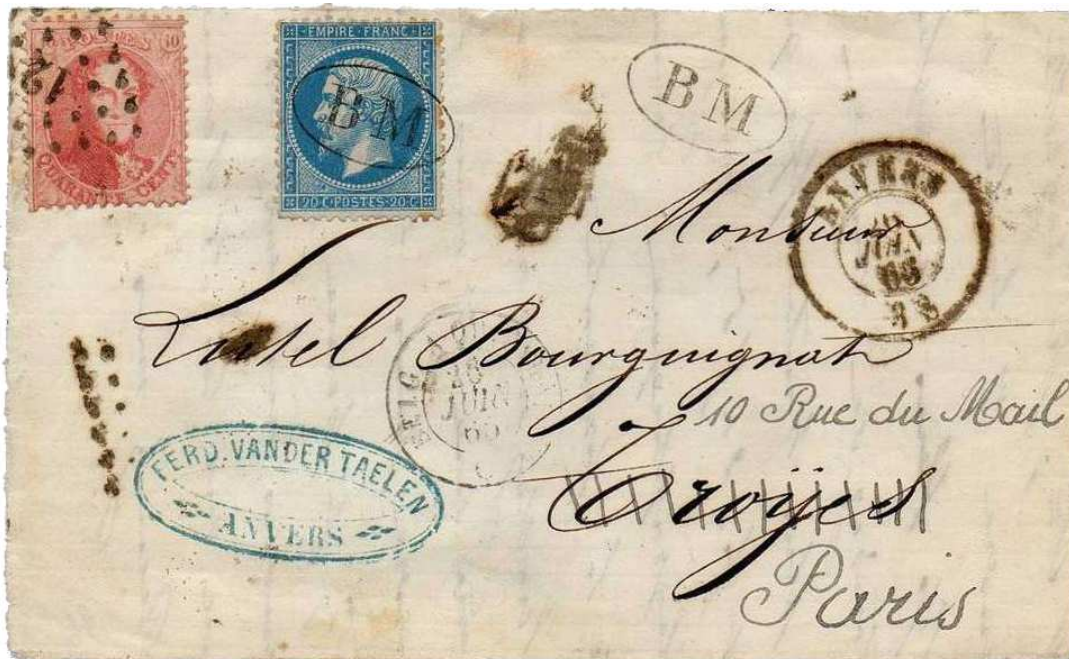 POSTES 40
12
QUARANTE CENTS
EMPIRE FRANC
BM
20 C POSTES 20 C
BM
ANVERS
JUIN
Monsieur
Bourguignat
BELG
JUIN
10 Rue du Mail
Troyes
Paris
FERD. VANDER TAELEN
ANVERS